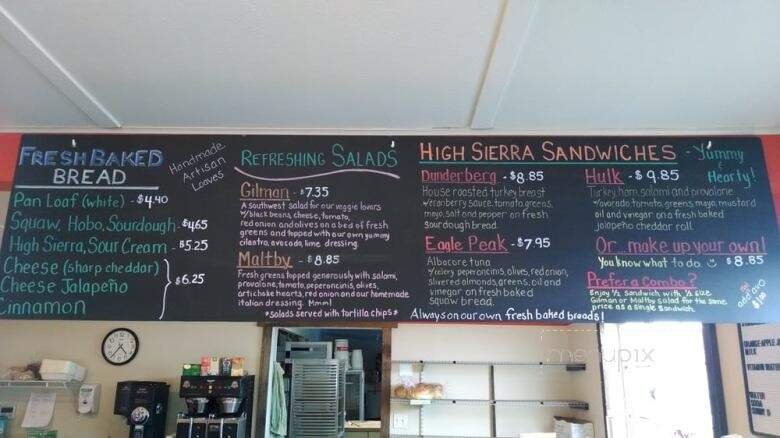 FRESH BAKED
BREAD
Handmade
Artisan
Loaves
Pan Loaf (white) - $4.40
Squaw, Hobo, Sourdough - $4.65
High Sierra, Sour Cream - $5.25
Cheese (sharp cheddar)
Cheese Jalapeño
Cinnamon
$6.25
REFRESHING SALADS
Gilman - $7.35
A southwest salad for our veggie lovers
w/black beans, cheese, tomato,
red onion and olives on a bed of fresh
greens and topped with our own yummy
cilantro, avocado, lime dressing.
Maltby - $8.85
Fresh greens topped generously with salami,
provalone, tomato, peperoncinis, olives,
artichoke hearts, red onion and our homemade
italian dressing. Mmm!
*salads served with tortilla chips*
HIGH SIERRA SANDWICHES - Yummy
& Hearty!
Dunderberg - $8.85
House roasted turkey breast
w/cranberry sauce, tomato, greens,
mayo, salt and pepper on fresh
sourdough bread.
Eagle Peak - $7.95
Albacore tuna
w/celery, peperoncinis, olives, red onion,
slivered almonds, greens, oil and
vinegar on fresh baked
squaw bread.
Always on our own fresh baked breads!
Hulk - $9.85
Turkey, ham, salami and provalone
w/avocado, tomato, greens, mayo, mustard
oil and vinegar on a fresh baked
jalapeño cheddar roll.
Or... make up your own!
You know what to do $8.85
Prefer a Combo?
Enjoy ½ sandwich with ½ size
Gilman or Maltby salad for the same
price as a single sandwich.
add avo
$1.00
menupix
ORANGE-APPLE J
MILK